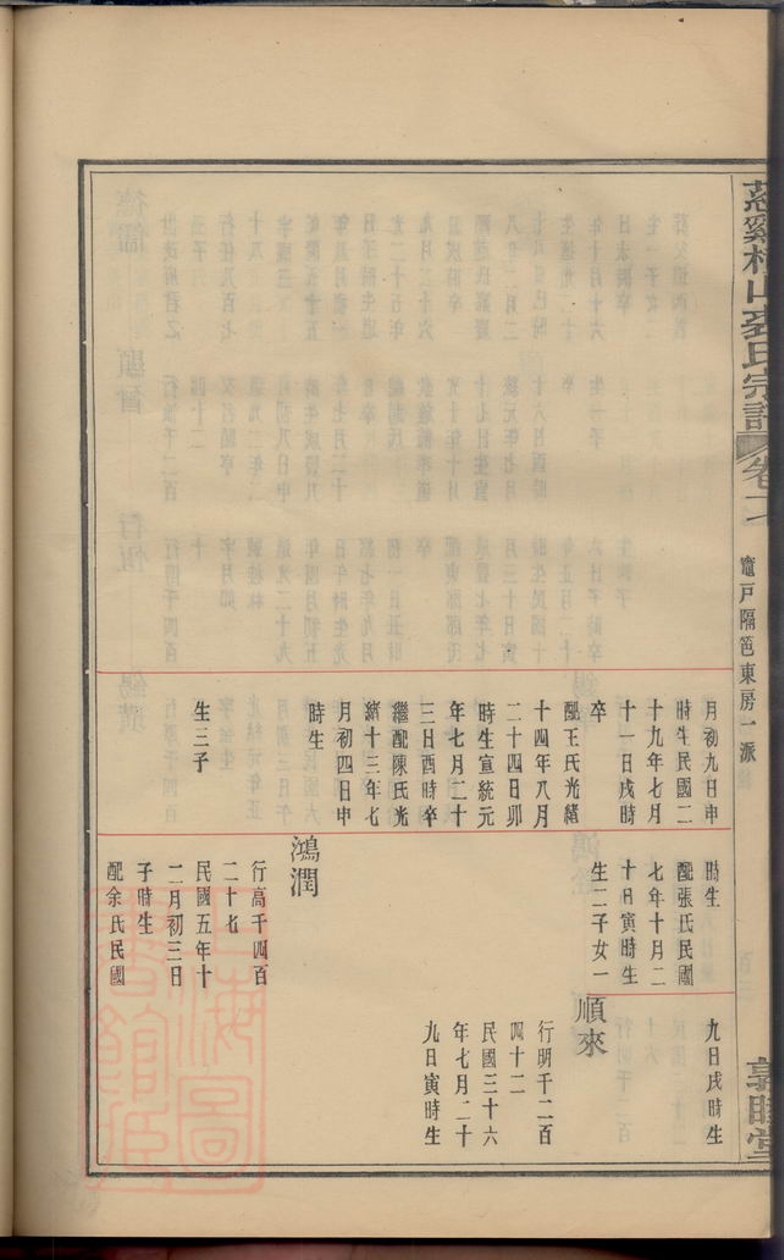 慈谿
山裘氏宗譜
卷
竈戶隔笆東房一派
敦睦堂
月初九日申
時生民國二
十九年七月
十一日戌時
卒
配王氏光緒
十四年八月
二十四日卯
時生宣統元
年七月二十
三日酉時卒
繼配陳氏光
緒十三年七
月初四日申
時生
生三子
時生
配張氏民國
七年十月二
十日寅時生
生二子女一
鴻潤
行高千四百
二十七
民國五年十
二月初三日
子時生
配余氏民國
九日戌時生
順來
行明千二百
四十二
民國三十六
年七月二十
九日寅時生
上海圖書館藏